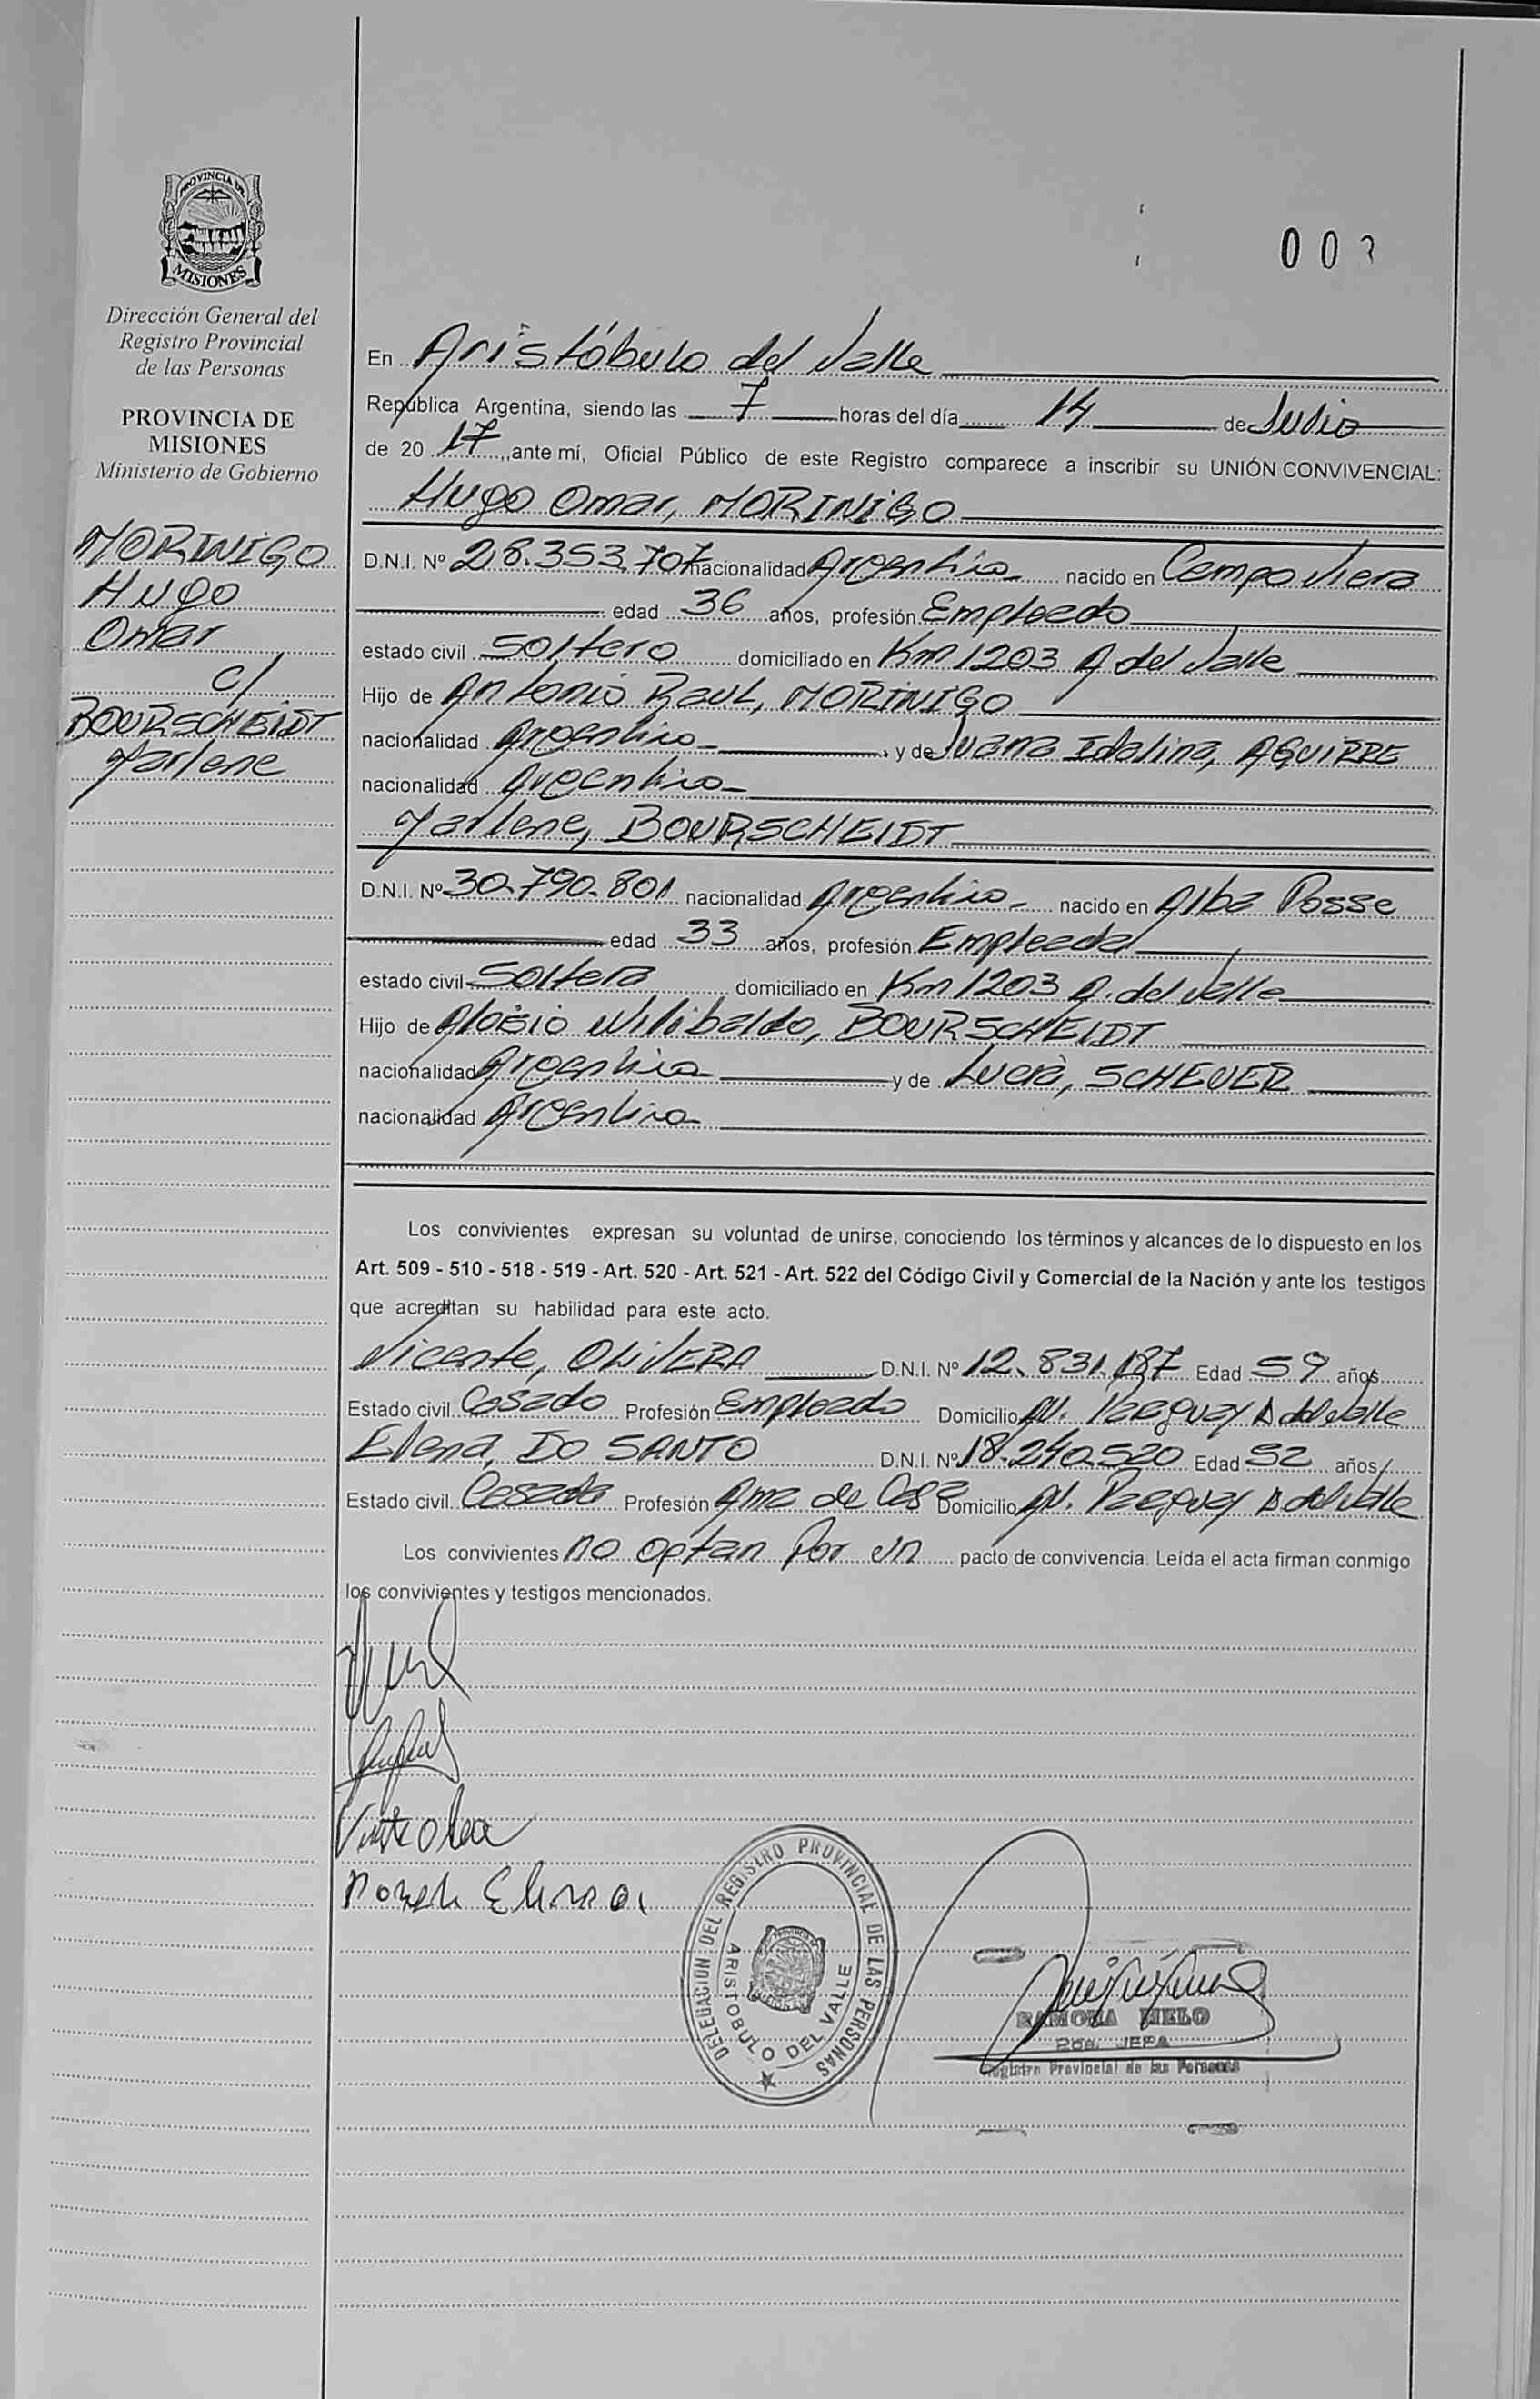 PROVINCIA DE
MISIONES
Dirección General del
Registro Provincial
de las Personas
PROVINCIA DE
MISIONES
Ministerio de Gobierno
MORINIGO
Hugo
Omar
c/
BOURSCHEIDT
Marlene
00
En Aristóbulo del Valle
República Argentina, siendo las 7 horas del día 14 de Julio
de 20 17, ante mí, Oficial Público de este Registro comparece a inscribir su UNIÓN CONVIVENCIAL:
Hugo Omar, MORINIGO
D.N.I. Nº 28.353.707 nacionalidad Argentina nacido en Campo Viera
edad 36 años, profesión Empleado
estado civil Soltero domiciliado en Km 1203 A del Valle
Hijo de Antonio Raul, MORINIGO
nacionalidad Argentino y de Juana Idalina, AGUIRRE
nacionalidad Argentina
Marlene, BOURSCHEIDT
D.N.I. Nº 30.790.801 nacionalidad Argentina nacido en Alba Posse
edad 33 años, profesión Empleada
estado civil Soltera domiciliado en Km 1203 A. del Valle
Hijo de Aloisio Wilibaldo, BOURSCHEIDT
nacionalidad Argentina y de Lucia, SCHEUER
nacionalidad Argentina
Los convivientes expresan su voluntad de unirse, conociendo los términos y alcances de lo dispuesto en los
Art. 509 - 510 - 518 - 519 - Art. 520 - Art. 521 - Art. 522 del Código Civil y Comercial de la Nación y ante los testigos
que acreditan su habilidad para este acto.
Vicente, OLIVERA D.N.I. Nº 12.831.187 Edad 59 años
Estado civil Casado Profesión Empleado Domicilio Av. Paraguay A del Valle
Elena, DO SANTO D.N.I. Nº 18.240.520 Edad 52 años
Estado civil Casada Profesión Ama de Casa Domicilio Av. Paraguay A del Valle
Los convivientes no optan por un pacto de convivencia. Leída el acta firman conmigo
los convivientes y testigos mencionados.
DELEGACION DEL REGISTRO PROVINCIAL DE LAS PERSONAS
ARISTOBULO DEL VALLE
RAMONA MELO
2da. JEFA
Registro Provincial de las Personas